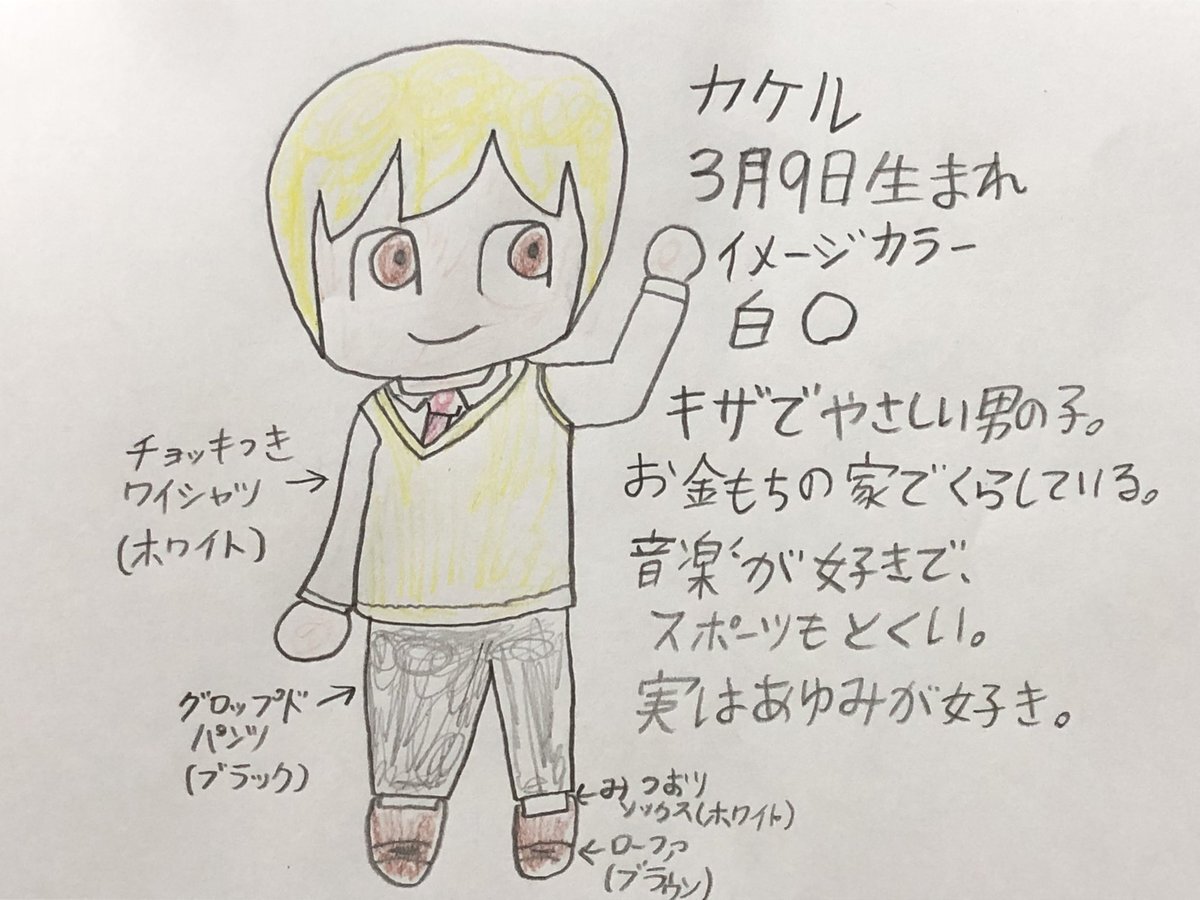 カケル
3月9日生まれ
イメージカラー
白○
キザでやさしい男の子。
お金もちの家でくらしている。
音楽が好きで、
スポーツもとくい。
実はあゆみが好き。
チョッキつき
ワイシャツ
(ホワイト)
グロップド
パンツ
(ブラック)
みつおり
ソックス(ホワイト)
ローファ
(ブラウン)